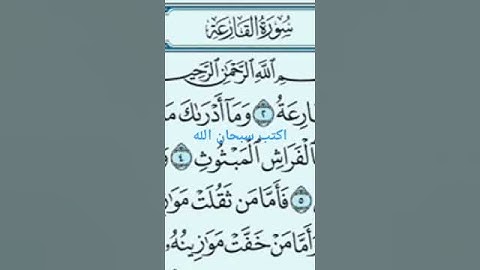 سُورَةُ القَارِعَةِ
مِ اللَّهِ الرَّحْمَٰنِ الرَّحِي
ارِعَةُ ٢ وَمَا أَدْرَىٰكَ مَ
اكتب سبحان الله
الْفَرَاشِ الْمَبْثُوثِ ٤ وَ
٥ فَأَمَّا مَن ثَقُلَتْ مَوَٰزِ
أَمَّا مَنْ خَفَّتْ مَوَٰزِينُهُ